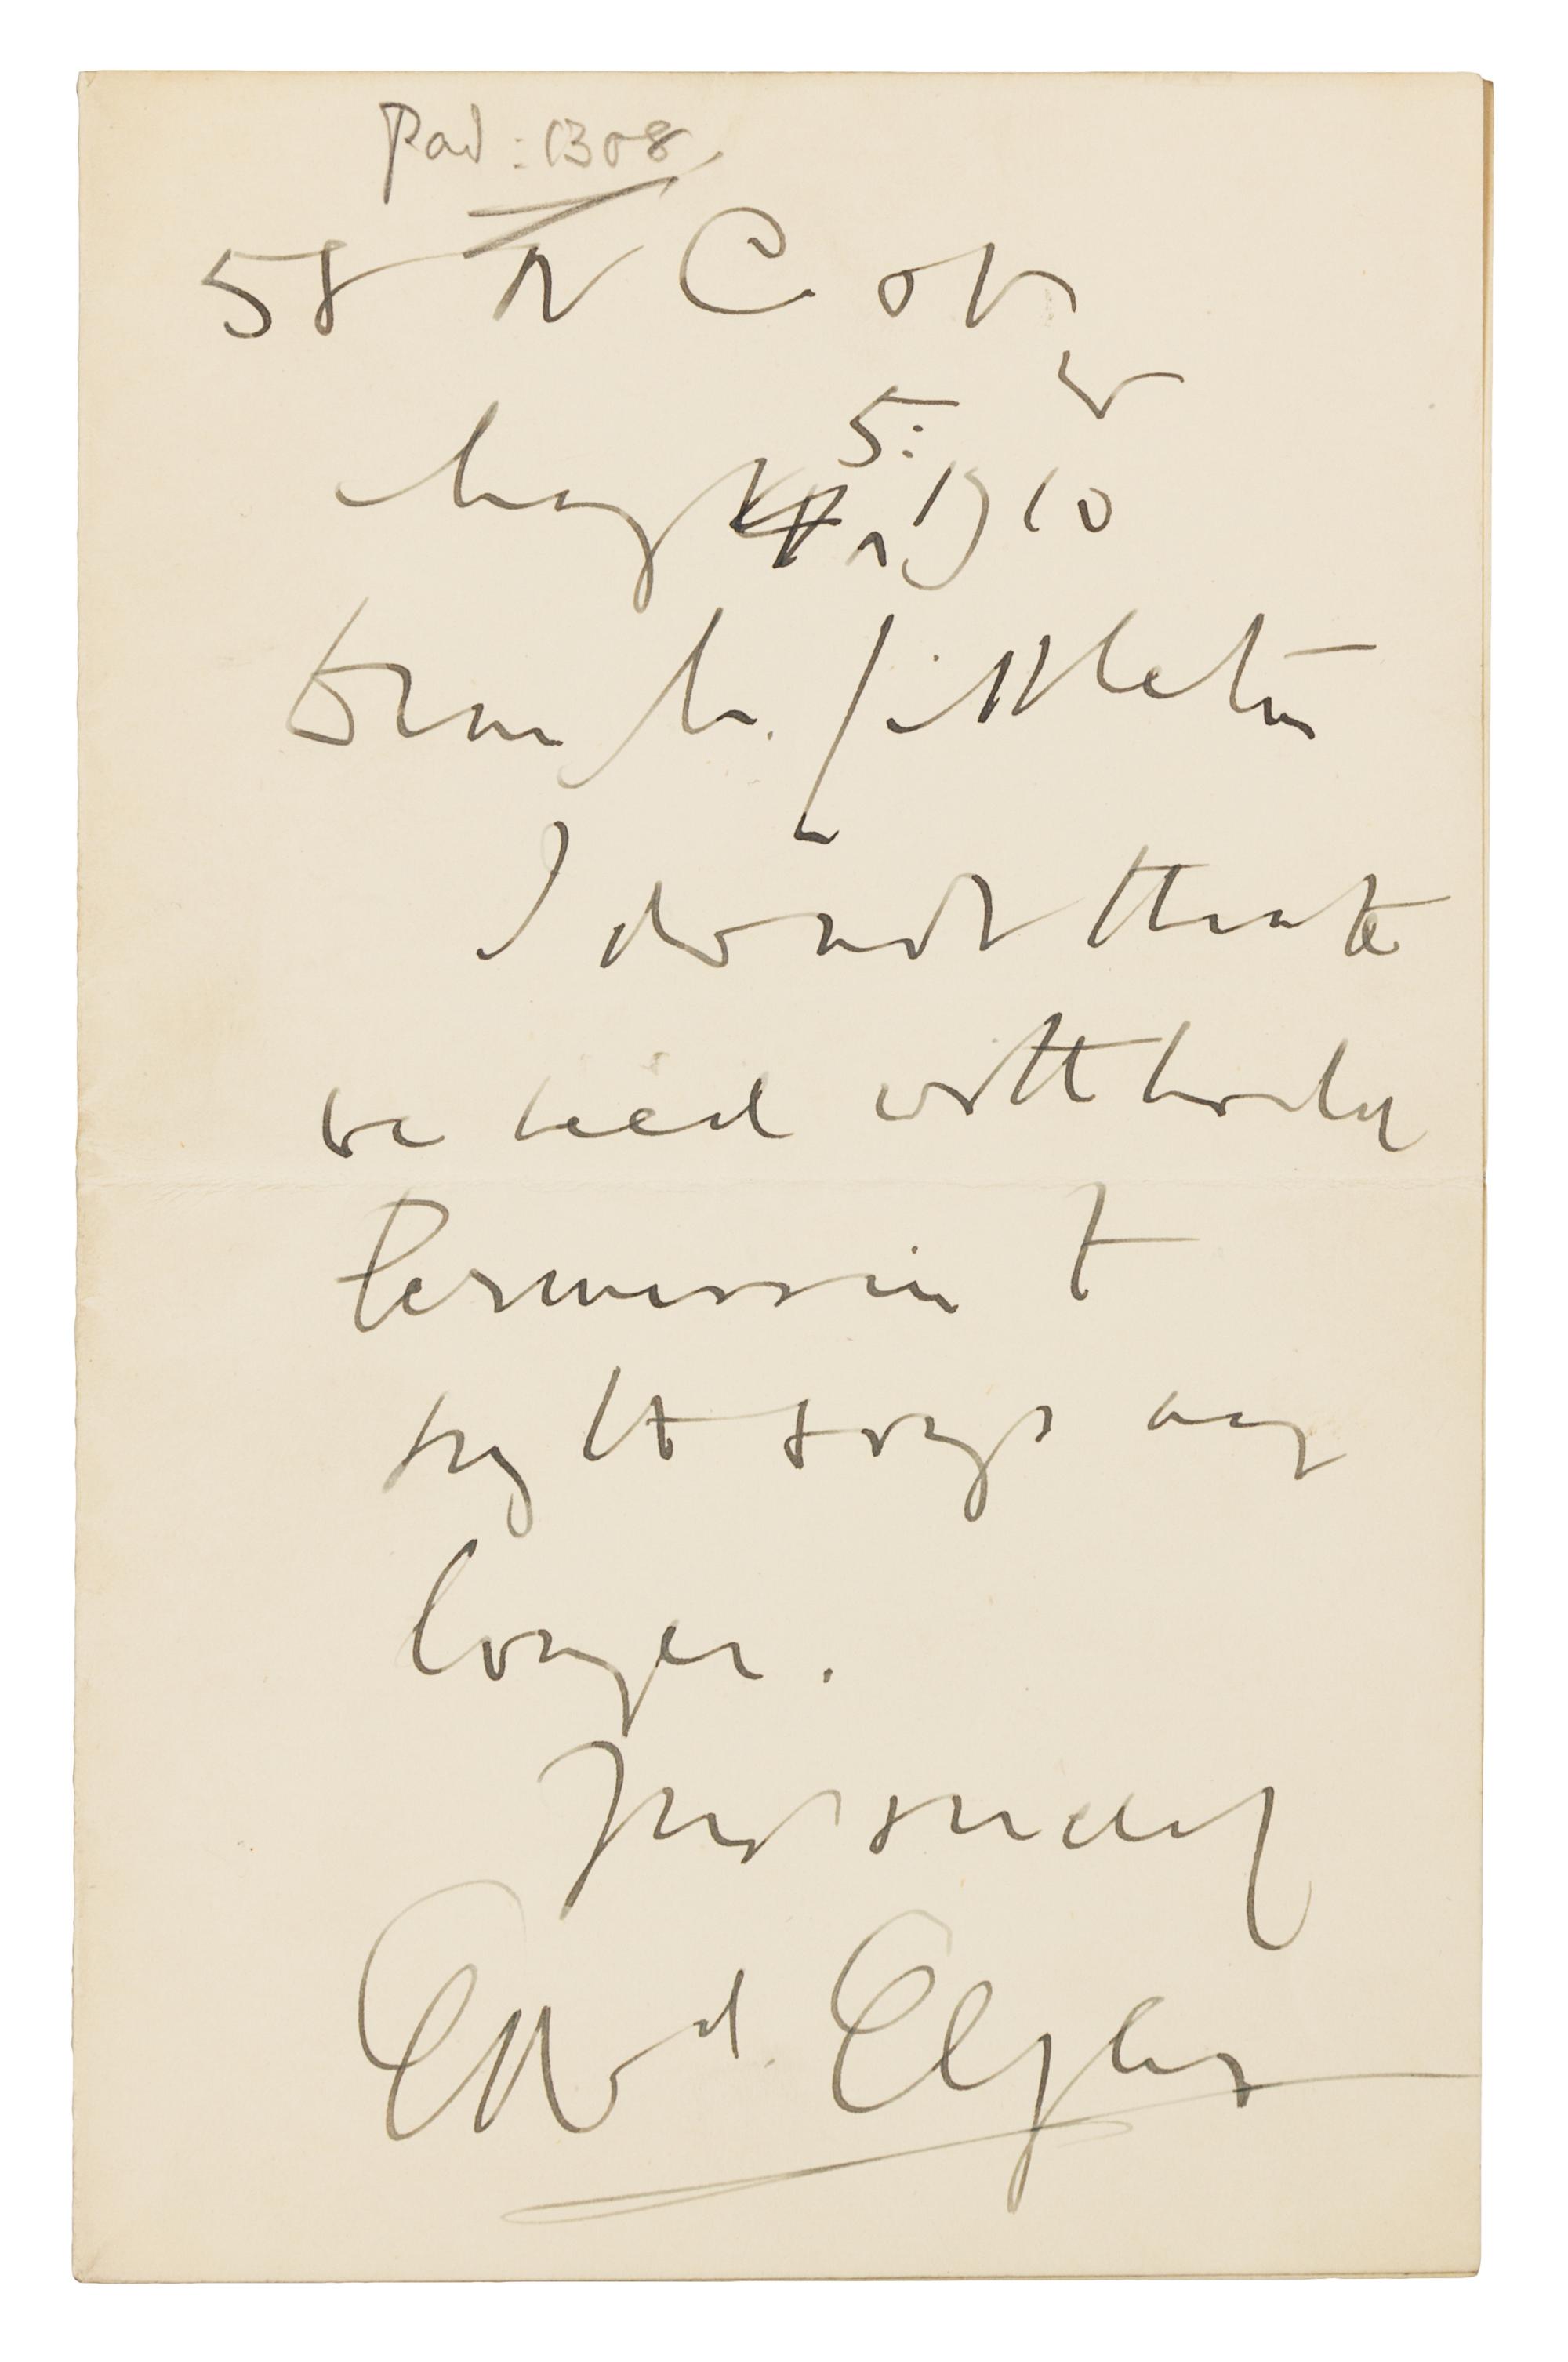 Pad: 1308
58 N C Str
W
5:
May 4, 1910
Dear Mr. Littleton
I do not think
we need withhold
permission to
sing the songs any
longer.
Yrs sincely
Edwd. Elgar